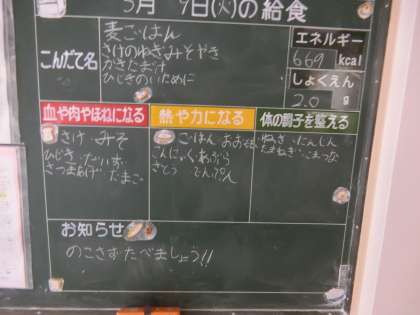 5月 9日(火)の給食
こんだて名
麦ごはん
さけのねぎみそやき
かきたま汁
ひじきのいために
エネルギー
669 kcal
しょくえん
2.0 g
血や肉やほねになる
さけ みそ
ひじき だいず
さつまあげ たまご
熱や力になる
ごはん おおむぎ
こんにゃく あぶら
さとう でんぷん
体の調子を整える
ねぎ にんじん
たまねぎ こまつな
お知らせ
のこさずたべましょう!!